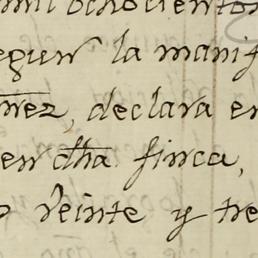 mil ochocientos
egun la manif
nez, declara en
en dha finca,
veinte y tre